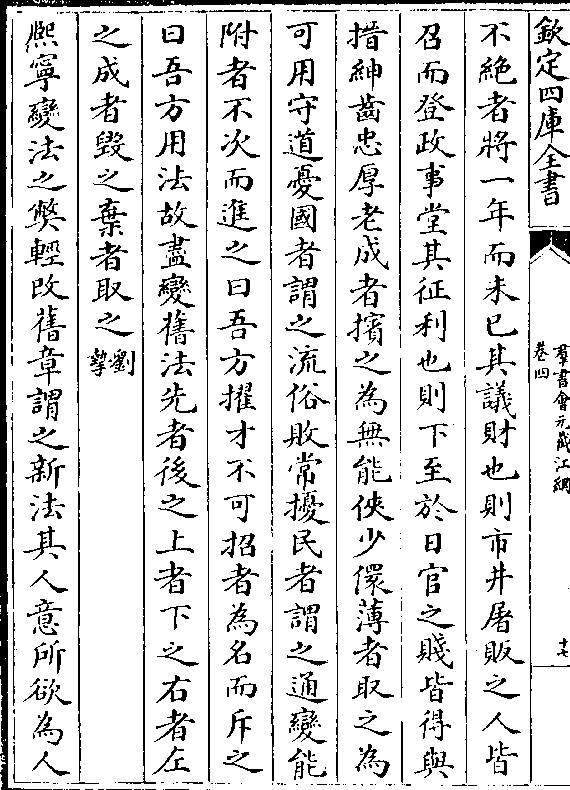 欽定四庫全書
羣書會元截江網
卷四
十七
不絶者將一年而未已其議財也則市井屠販之人皆
召而登政事堂其征利也則下至於日官之賤皆得與
搢紳齒忠厚老成者擯之為無能俠少儇薄者取之為
可用守道憂國者謂之流俗敗常擾民者謂之通變能
附者不次而進之曰吾方擢才不可招者為名而斥之
曰吾方用法故盡變舊法先者後之上者下之右者左
之成者毁之棄者取之劉摯
熈寧變法之弊輕改舊章謂之新法其人意所欲為人